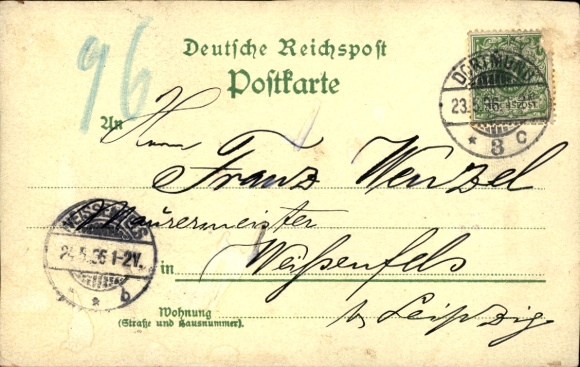 96
Deutsche Reichspost
Postkarte
DORTMUND
23.5.96
* 3 c
An Herrn
Franz Wenzel
Maurermeister
WEISSENFELS
24.5.96 1-2V.
* * b
in Weißenfels
b/ Leipzig.
Wohnung
(Straße und Hausnummer).